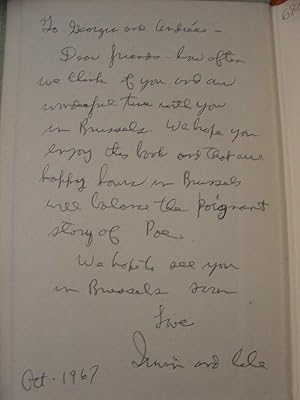 To Georgia and Andréas -
Dear friends - how often
we think of you and our
wonderful time with you
in Brussels We hope you
enjoy this book and that our
happy hours in Brussels
will balance the poignant
story of Poe.
We hope to see you
in Brussels soon
Love
Irwin and
Oct. 1967